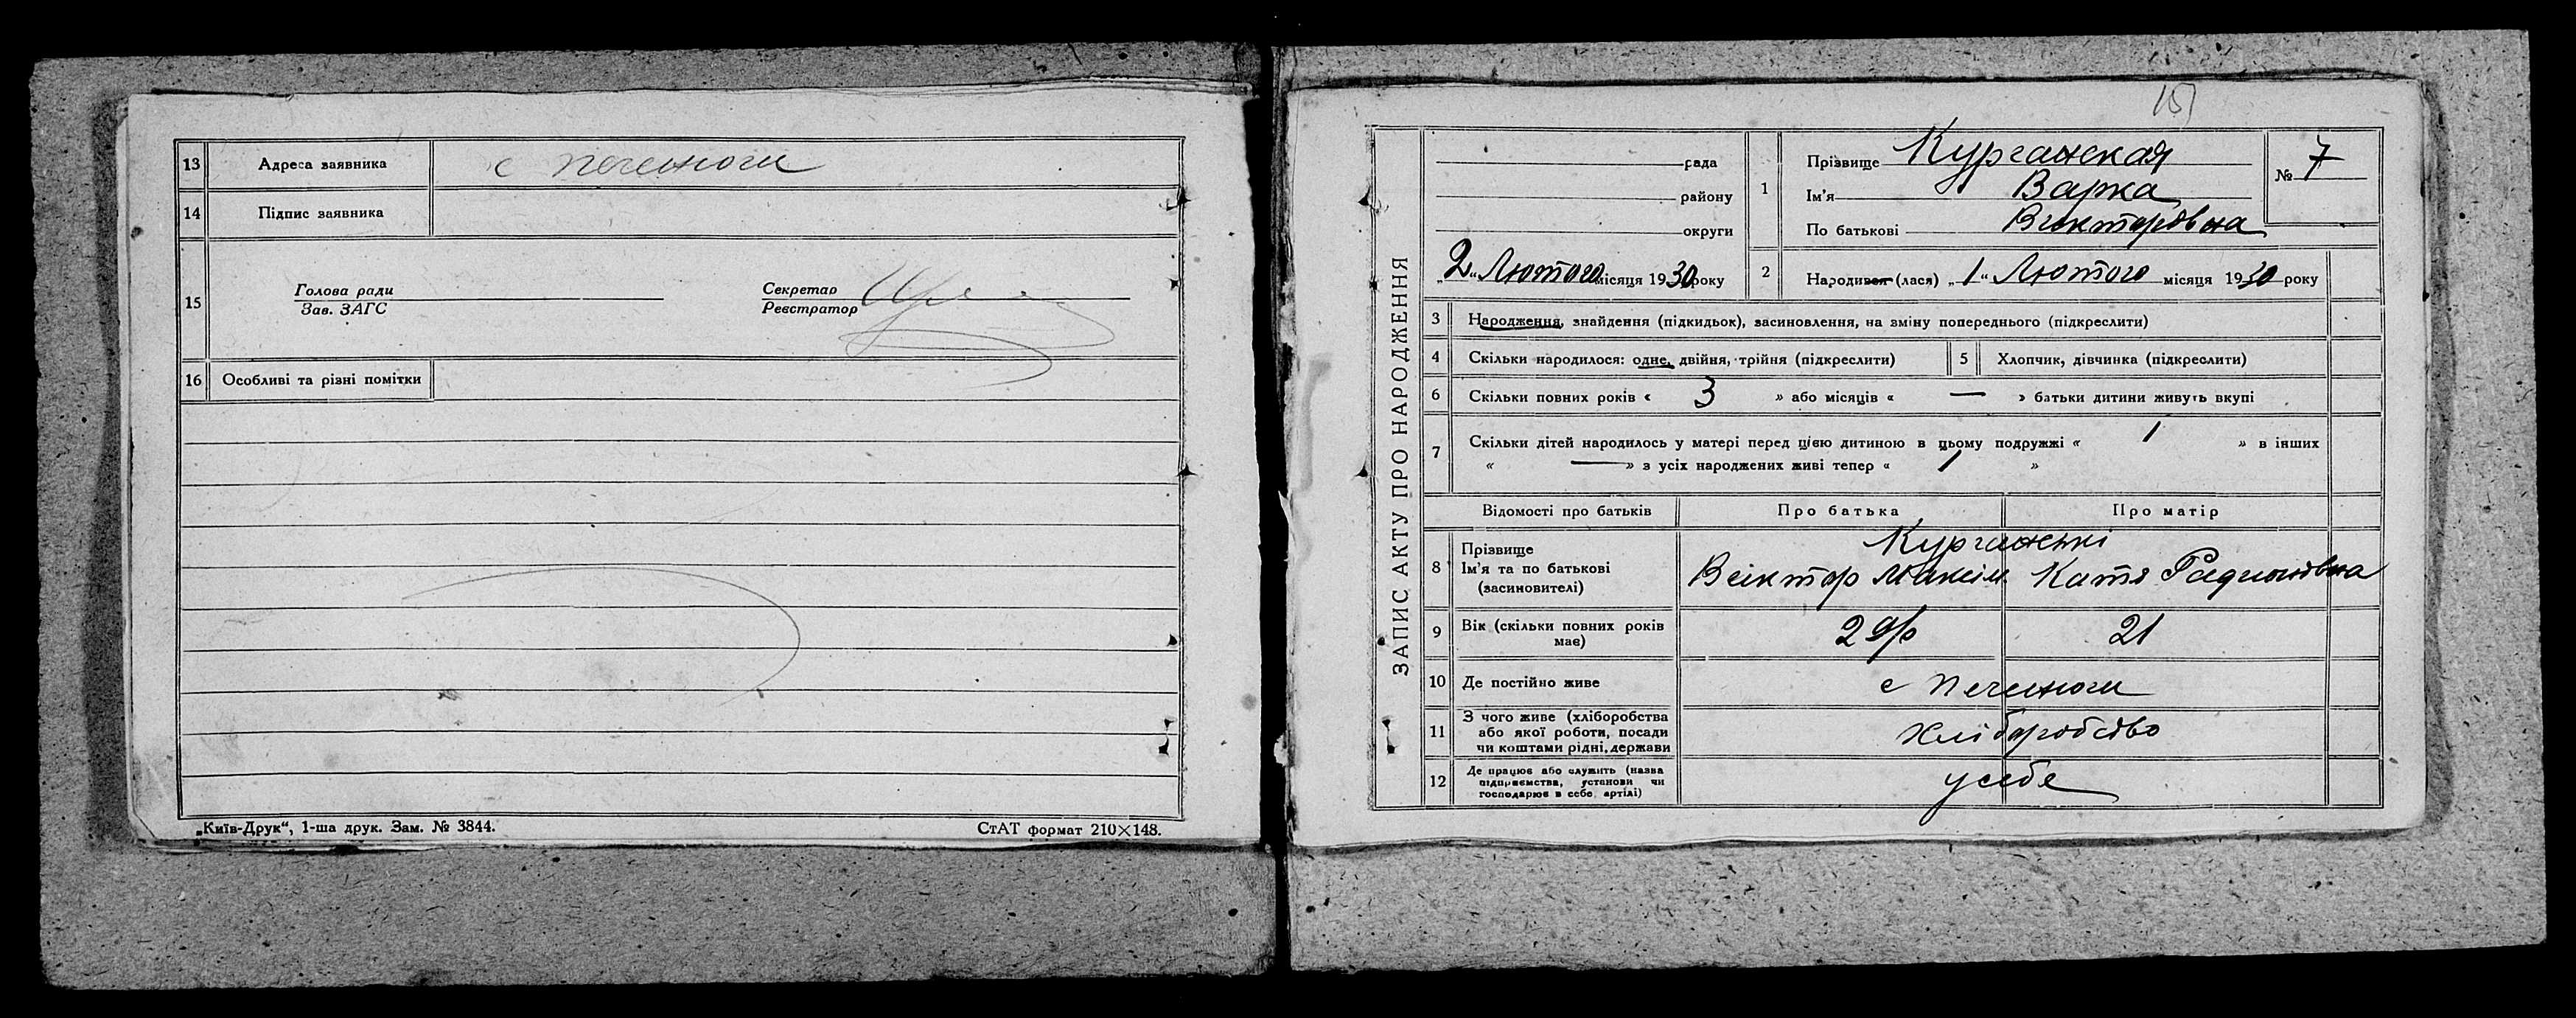 13 Адреса заявника с Печиноги
14 Підпис заявника
15 Голова ради
Зав. ЗАГС
Секретар
Реєстратор
16 Особливі та різні помітки
„Київ-Друк“, 1-ша друк. Зам. № 3844.
СтАТ формат 210×148.
ЗАПИС АКТУ ПРО НАРОДЖЕННЯ
рада
району
округи
„2“ Лютого місяця 1930 року
1 Прізвище Курганская
Ім'я Варка
По батькові Вікторовна
№ 7
2 Народився (лася) „1“ Лютого місяця 1930 року
3 Народження, знайдення (підкидьок), засиновлення, на зміну попереднього (підкреслити)
4 Скільки народилося: одне, двійня, трійня (підкреслити)
5 Хлопчик, дівчинка (підкреслити)
6 Скільки повних років « 3 » або місяців « — » батьки дитини живуть вкупі
7 Скільки дітей народилось у матері перед цією дитиною в цьому подружжі « 1 » в інших
« — » з усіх народжених живі тепер « 1 »
Відомості про батьків Про батька Про матір
8 Прізвище
Ім'я та по батькові
(засиновителі)
Курганські
Віктор Максім Катя Радионовна
9 Вік (скільки повних років
має)
29 р 21
10 Де постійно живе с Печиноги
11 З чого живе (хліборобства
або якої роботи, посади
чи коштами рідні, держави
хліборобство
12 Де працює або служить (назва
підприємства, установи чи
господарює в себе, артілі)
у себе